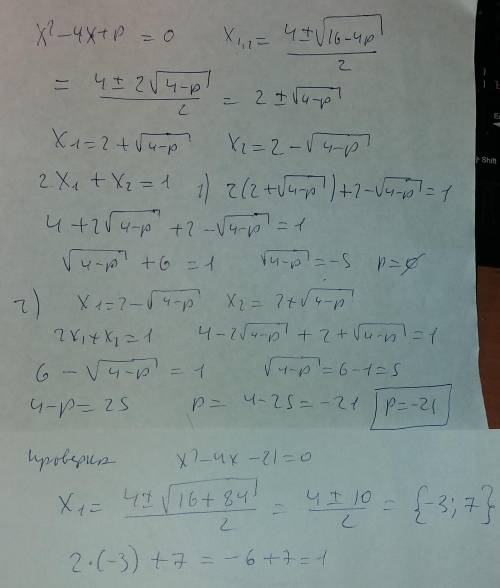 x² - 4x + p = 0   x₁,₂ = (4 ± √(16-4p))/2
= (4 ± 2√(4-p))/2 = 2 ± √(4-p)
x₁ = 2 + √(4-p)   x₂ = 2 - √(4-p)
2x₁ + x₂ = 1   1) 2(2 + √(4-p)) + 2 - √(4-p) = 1
4 + 2√(4-p) + 2 - √(4-p) = 1
√(4-p) + 6 = 1   √(4-p) = -5   p = ∅
2) x₁ = 2 - √(4-p)   x₂ = 2 + √(4-p)
2x₁ + x₂ = 1   4 - 2√(4-p) + 2 + √(4-p) = 1
6 - √(4-p) = 1   √(4-p) = 6 - 1 = 5
4 - p = 25   p = 4 - 25 = -21   p = -21
проверка   x² - 4x - 21 = 0
x₁ = (4 ± √(16 + 84))/2 = (4 ± 10)/2 = {-3; 7}
2·(-3) + 7 = -6 + 7 = 1
Shift